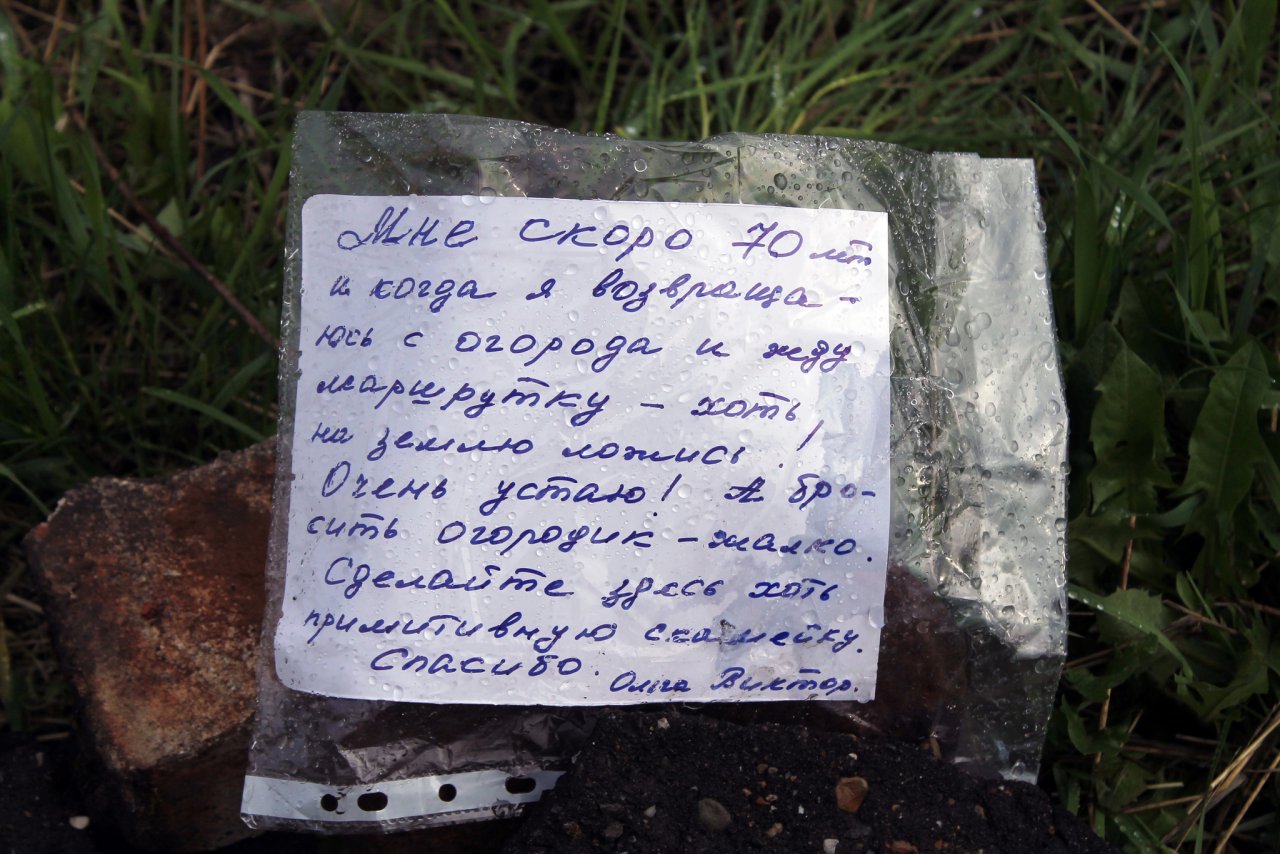 Мне скоро 70 лет
и когда я возвраща-
юсь с огорода и жду
маршрутку - хоть
на землю ложись!
Очень устаю! А бро-
сить огородик - жалко.
Сделайте здесь хоть
примитивную скамейку.
Спасибо.
Ольга Виктор.